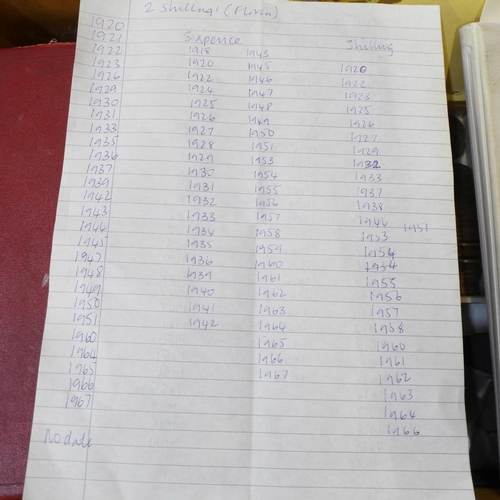 2 Shillings (Florin)
1920
1921
1922
1923
1926
1929
1930
1931
1933
1935
1936
1937
1939
1942
1943
1944
1945
1947
1948
1949
1950
1951
1960
1964
1965
1966
1967
No date
Sixpence
1918
1920
1922
1924
1925
1926
1927
1928
1929
1930
1931
1932
1933
1934
1935
1936
1939
1940
1941
1942
1943
1945
1946
1947
1948
1949
1950
1951
1953
1954
1955
1956
1957
1958
1959
1960
1961
1962
1963
1964
1965
1966
1967
Shilling
1920
1922
1923
1925
1926
1927
1929
1932
1933
1937
1938
1946 1951
1953
1954
1954
1955
1956
1957
1958
1960
1961
1962
1963
1964
1966